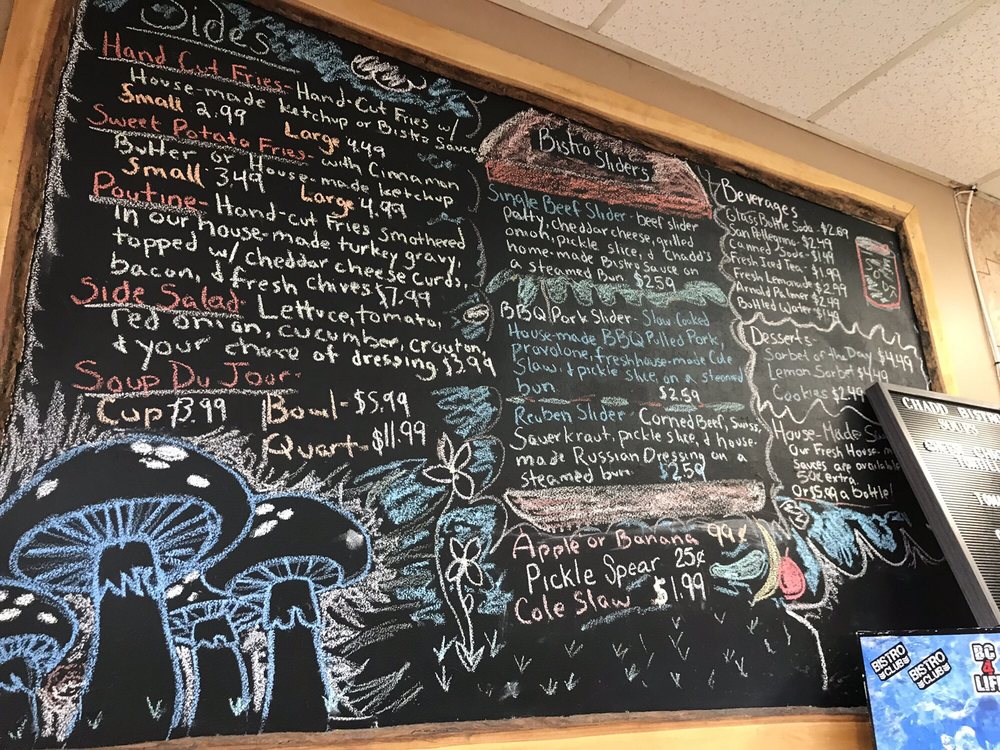 Sides
Hand Cut Fries- Hand-Cut Fries w/
House-made Ketchup or Bistro Sauce
Small 2.99 Large 4.49
Sweet Potato Fries- with Cinnamon
Butter or House-made Ketchup
Small 3.49 Large 4.99
Poutine- Hand-cut Fries Smothered
In our house-made turkey gravy,
topped w/ cheddar cheese curds,
bacon, & fresh chives $7.99
Side Salad- Lettuce, tomato,
red onion, cucumber, crouton,
& your choice of dressing $3.99
Soup Du Jour-
Cup $3.99 Bowl- $5.99
Quart- $11.99
Bistro Sliders
Single Beef Slider- beef slider
patty, cheddar cheese, grilled
onion, pickle slice, & Chadd's
home-made Bistro Sauce on
a steamed Bun $2.59
BBQ Pork Slider- Slow Cooked
House-made BBQ Pulled Pork,
Provalone, fresh house-made Cole
Slaw, & pickle slice, on a steamed
bun. $2.59
Reuben Slider- Corned Beef, Swiss,
Sauerkraut, pickle slice, & house-
made Russian Dressing on a
steamed bun $2.59
Apple or Banana 99¢
Pickle Spear 25¢
Cole Slaw $1.99
Beverages
Glass Bottle Soda- $2.89
San Pellegrino- $2.49
Canned Soda- $1.49
Fresh Iced Tea- $1.99
Fresh Lemonade- $2.99
Arnold Palmer $2.49
Bottled Water- $1.49
Desserts-
Sorbet of the Day $4.49
Lemon Sorbet $4.49
Cookies $2.49
House-Made
Our Fresh House-
Sauces are available
50¢ extra.
Or $5.99 a bottle!
CHADD BISTRO
SOUPS
BISTRO
CLUB
BISTRO
CLUB
BC
4
LIFE